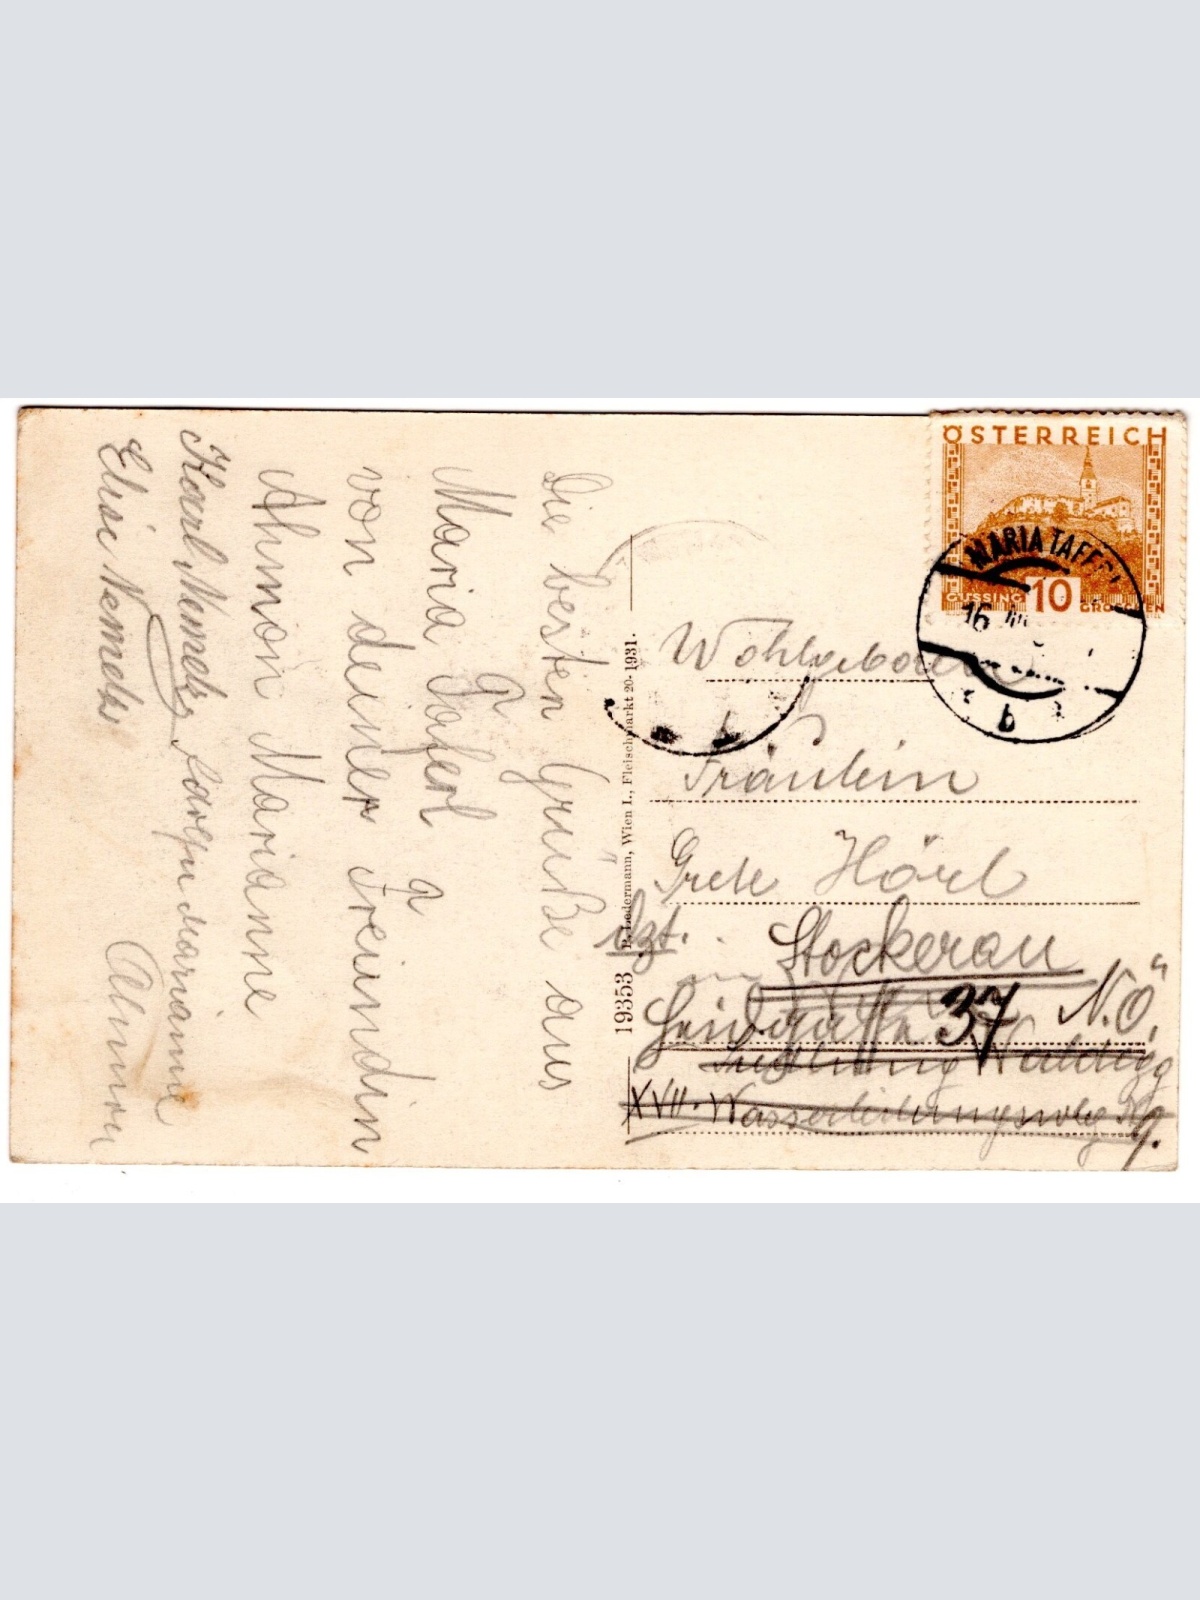 Die besten Grüße aus
Maria Taferl
von deiner Freundin
Marianne
Karl Nemetz
Elise Nemetz
P. Ledermann, Wien I., Fleischmarkt 20-1931.
19353
ÖSTERREICH
GÜSSING 10 GROSCHEN
MARIA TAFERL
16
b
Wohlgeboren
Fräulein
Grete Hörl
dzt. Stockerau
37 N.Ö.
Siedlung
XVII. Wasserleitungsweg